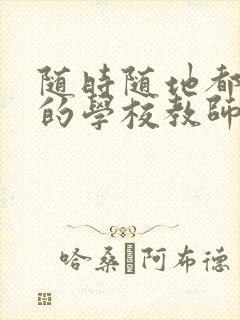 随時随地都
的學校教師
哈桑 阿布德